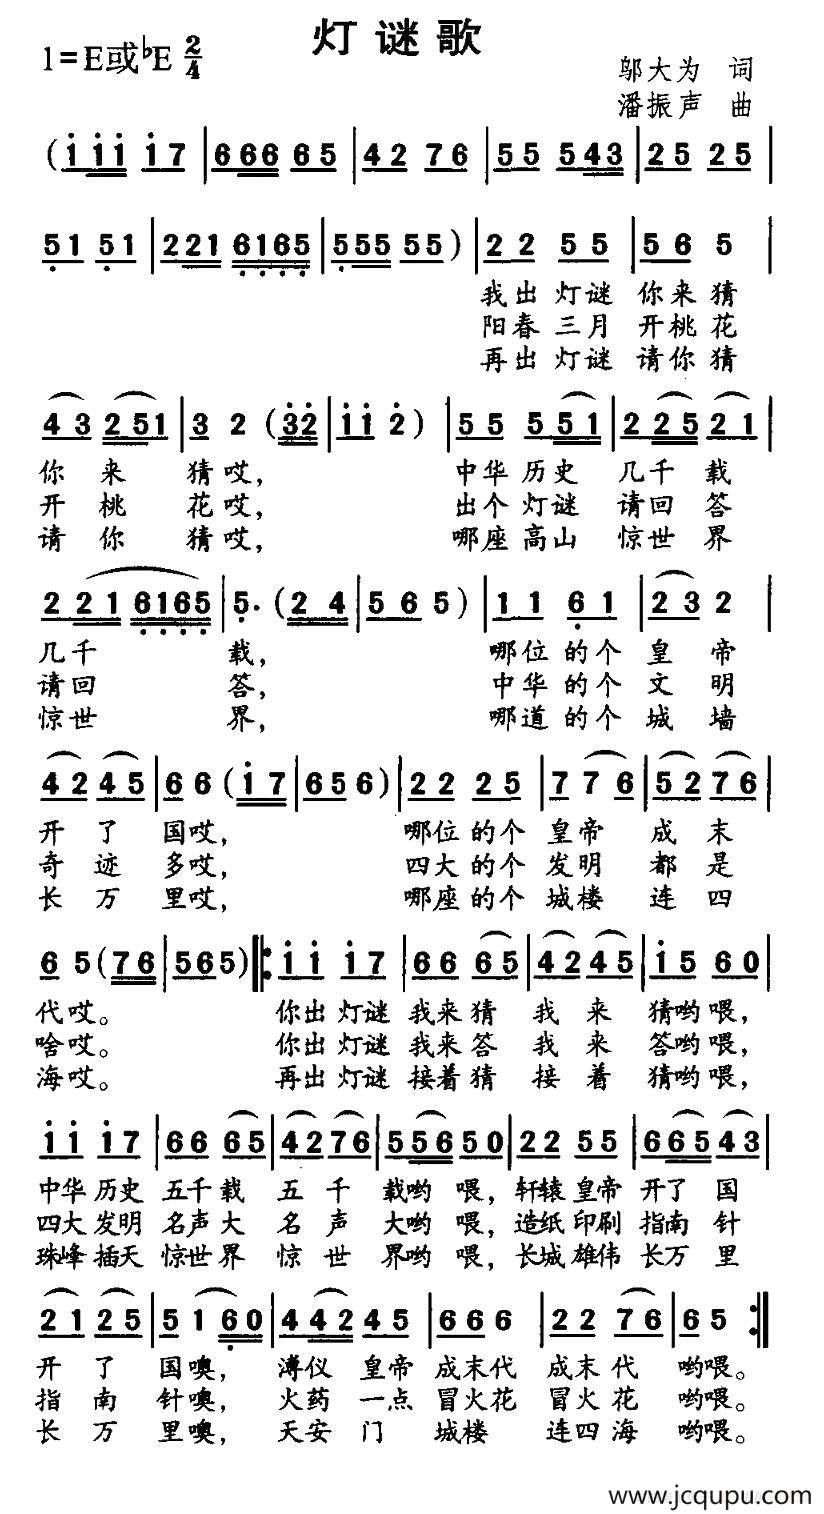 灯谜歌
1=E或♭E 2/4
邬大为 词
潘振声 曲
(i i i i 7 | 6 6 6 6 5 | 4 2 7 6 | 5 5 5 4 3 | 2 5 2 5 |
5 1 5 1 | 2 2 1 6 1 6 5 | 5 5 5 5 5 ) | 2 2 5 5 | 5 6 5 |
我出 灯谜 你来猜
阳春 三月 开桃花
再出 灯谜 请你猜
4 3 2 5 1 | 3 2 ( 3 2 | i i 2 ) | 5 5 5 5 1 | 2 2 5 2 1 |
你 来 猜哎, 中华 历史 几千 载
开 桃 花哎, 出个 灯谜 请回 答
请 你 猜哎, 哪座 高山 惊世 界
2 2 1 6 1 6 5 | 5 . ( 2 4 | 5 6 5 ) | 1 1 6 1 | 2 3 2 |
几千 载, 哪位 的个 皇 帝
请回 答, 中华 的个 文 明
惊世 界, 哪道 的个 城 墙
4 2 4 5 | 6 6 ( i 7 | 6 5 6 ) | 2 2 2 5 | 7 7 6 | 5 2 7 6 |
开 了 国哎, 哪位 的个 皇帝 成 末
奇 迹 多哎, 四大 的个 发明 都 是
长 万 里哎, 哪座 的个 城楼 连 四
6 5 ( 7 6 | 5 6 5 ) |: i i i 7 | 6 6 6 5 | 4 2 4 5 | i 5 6 0 |
代哎。 你出 灯谜 我来猜 我 来 猜哟 喂,
啥哎。 你出 灯谜 我来答 我 来 答哟 喂,
海哎。 再出 灯谜 接着猜 接 着 猜哟 喂,
i i i 7 | 6 6 6 5 | 4 2 7 6 | 5 5 6 5 0 | 2 2 5 5 | 6 6 5 4 3 |
中华 历史 五千载 五 千 载哟 喂, 轩辕 皇帝 开了 国
四大 发明 名声大 名 声 大哟 喂, 造纸 印刷 指南 针
珠峰 插天 惊世界 惊 世 界哟 喂, 长城 雄伟 长万 里
2 1 2 5 | 5 1 6 0 | 4 4 2 4 5 | 6 6 6 | 2 2 7 6 | 6 5 :|
开 了 国噢, 溥仪 皇帝 成末代 成末 代 哟喂。
指 南 针噢, 火药 一点 冒火花 冒火 花 哟喂。
长 万 里噢, 天安 门 城楼 连四 海 哟喂。
www.jcqupu.com